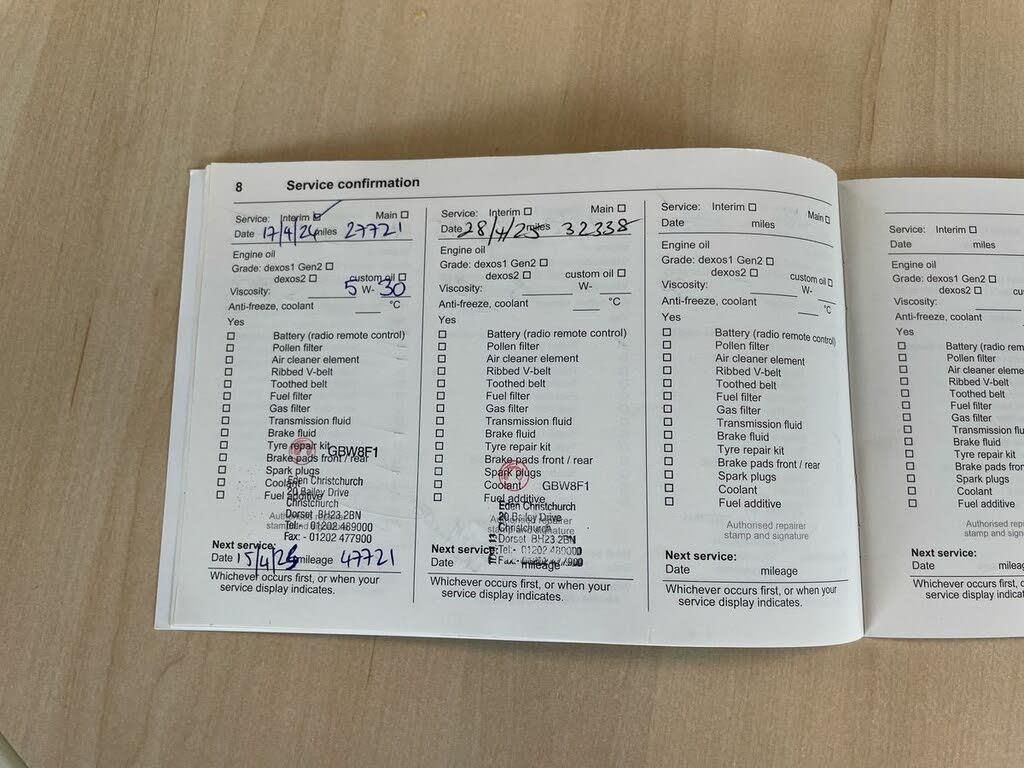 8 Service confirmation
Service: Interim Main
Date 17/4/24 miles 27721
Engine oil
Grade: dexos1 Gen2
dexos2 custom oil
Viscosity: 5 W- 30
Anti-freeze, coolant °C
Yes
Battery (radio remote control)
Pollen filter
Air cleaner element
Ribbed V-belt
Toothed belt
Fuel filter
Gas filter
Transmission fluid
Brake fluid
Tyre repair kit
GBW8F1
Brake pads front / rear
Spark plugs
Coolant
Fuel additive
Eden Christchurch
20 Bailey Drive
Christchurch
Dorset BH23 2BN
Tel:- 01202 489000
Fax: - 01202 477900
Authorised repairer
stamp and signature
Next service:
Date 15/4/25 mileage 47721
Whichever occurs first, or when your
service display indicates.
Service: Interim Main
Date 28/4/25 miles 32338
Engine oil
Grade: dexos1 Gen2
dexos2 custom oil
Viscosity: W-
Anti-freeze, coolant °C
Yes
Battery (radio remote control)
Pollen filter
Air cleaner element
Ribbed V-belt
Toothed belt
Fuel filter
Gas filter
Transmission fluid
Brake fluid
Tyre repair kit
Brake pads front / rear
Spark plugs
Coolant
GBW8F1
Fuel additive
Eden Christchurch
20 Bailey Drive
Christchurch
Dorset BH23 2BN
Tel:- 01202 489000
Fax:- 01202 477900
Authorised repairer
stamp and signature
Next service:
Date mileage
Whichever occurs first, or when your
service display indicates.
Service: Interim Main
Date miles
Engine oil
Grade: dexos1 Gen2
dexos2 custom oil
Viscosity: W-
Anti-freeze, coolant °C
Yes
Battery (radio remote control)
Pollen filter
Air cleaner element
Ribbed V-belt
Toothed belt
Fuel filter
Gas filter
Transmission fluid
Brake fluid
Tyre repair kit
Brake pads front / rear
Spark plugs
Coolant
Fuel additive
Authorised repairer
stamp and signature
Next service:
Date mileage
Whichever occurs first, or when your
service display indicates.
Service: Interim
Date miles
Engine oil
Grade: dexos1 Gen2
dexos2 custom
Viscosity:
Anti-freeze, coolant
Yes
Battery (radio rem
Pollen filter
Air cleaner eleme
Ribbed V-belt
Toothed belt
Fuel filter
Gas filter
Transmission flu
Brake fluid
Tyre repair kit
Brake pads front
Spark plugs
Coolant
Fuel additive
Authorised repairer
stamp and signature
Next service:
Date mileag
Whichever occurs first, or
service display indicates